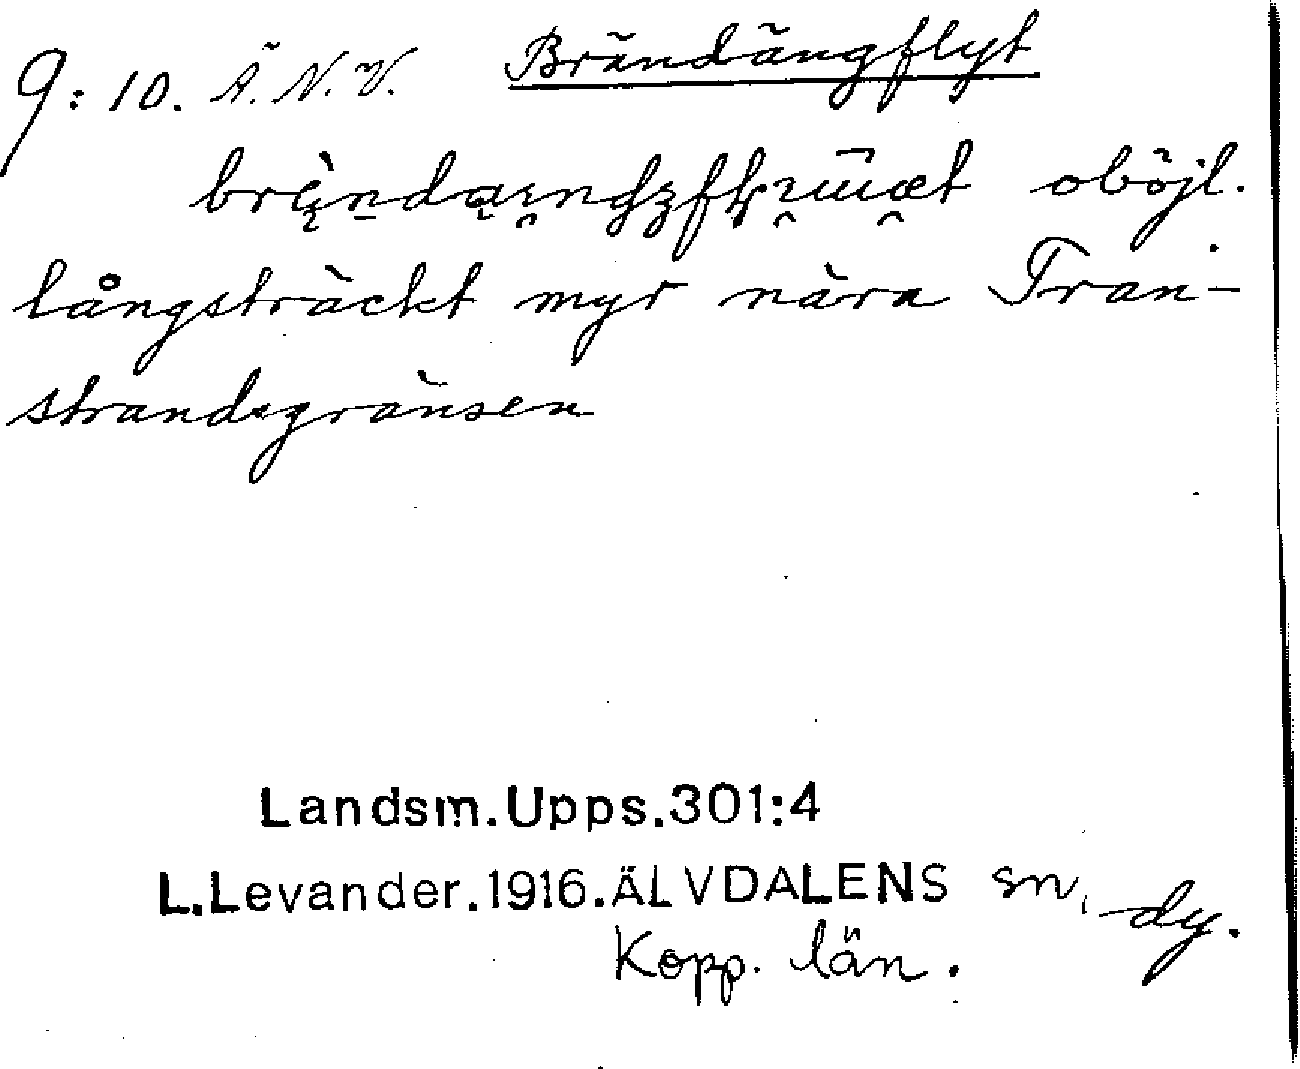 9:10. Ä.N.V. Brändängflyt
oböjl.
långsträckt myr nära Tran-
strandsgränsen
Landsm.Upps.301:4
L.Levander.1916.ÄLVDALENS sn, dy.
Kopp. län.